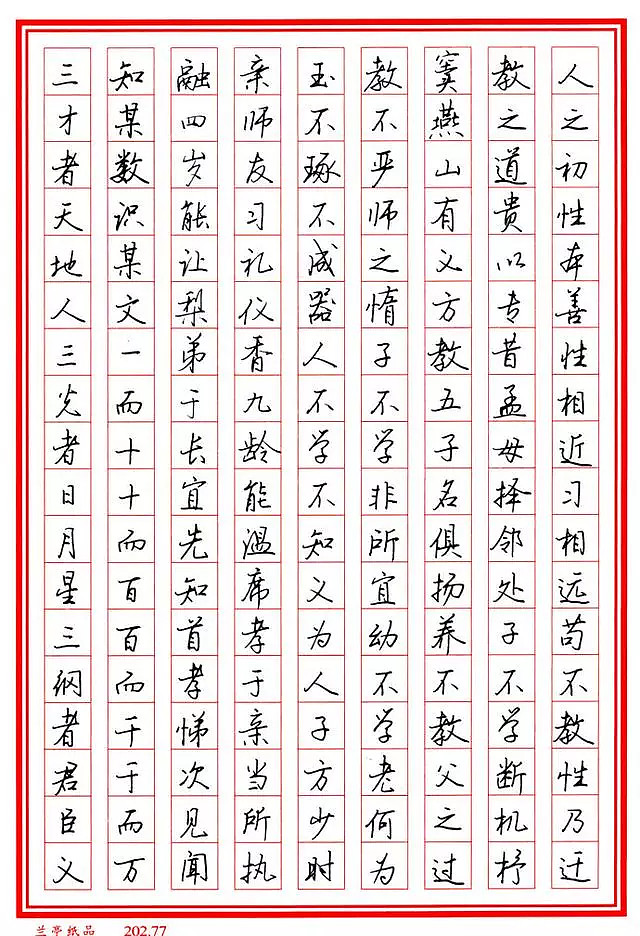 人之初性本善性相近习相远苟不教性乃迁
教之道贵以专昔孟母择邻处子不学断机杼
窦燕山有义方教五子名俱扬养不教父之过
教不严师之惰子不学非所宜幼不学老何为
玉不琢不成器人不学不知义为人子方少时
亲师友习礼仪香九龄能温席孝于亲当所执
融四岁能让梨弟于长宜先知首孝悌次见闻
知某数识某文一而十十而百百而千千而万
三才者天地人三光者日月星三纲者君臣义
兰亭纸品 202.77